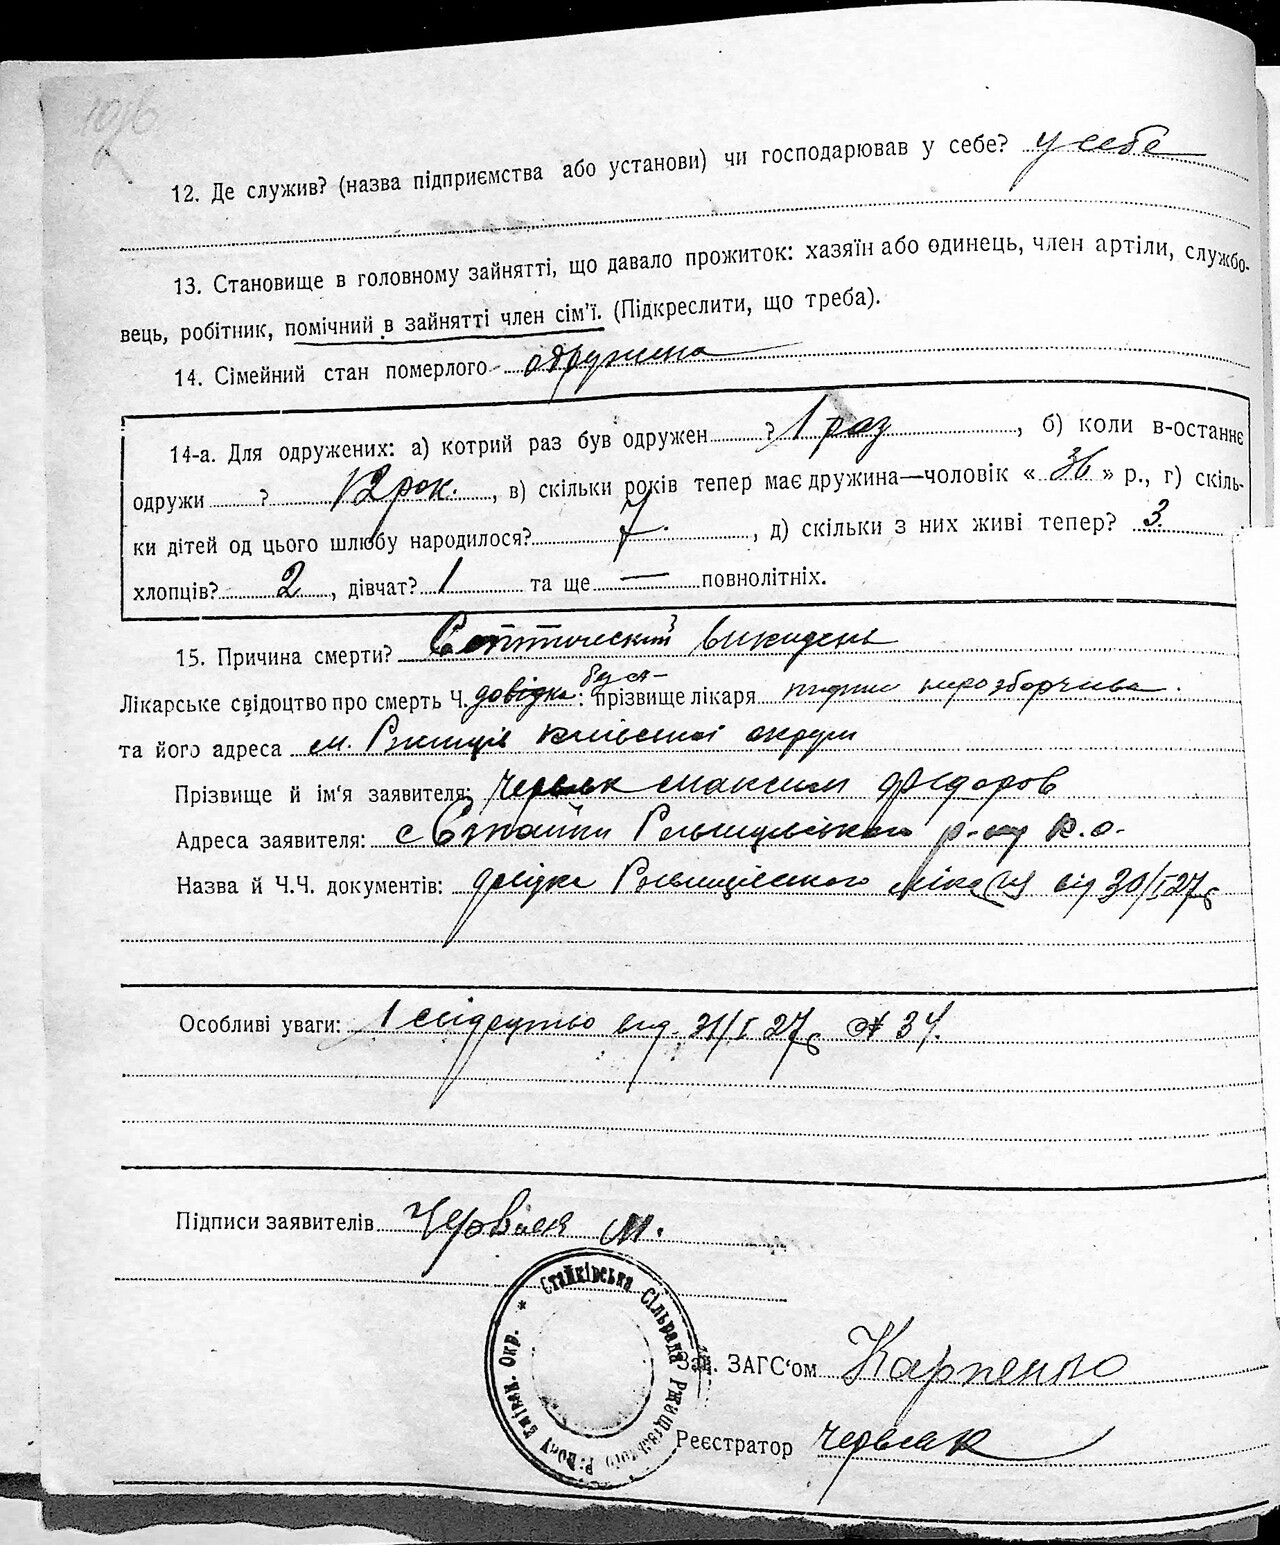 12. Де служив? (назва підприємства або установи) чи господарював у себе? у себе
13. Становище в головному зайнятті, що давало прожиток: хазяїн або одинець, член артіли, службо-
вець, робітник, помічний в зайнятті член сім'ї. (Підкреслити, що треба).
14. Сімейний стан померлого одружена
14-а. Для одружених: а) котрий раз був одружен ? 1 раз, б) коли в-останнє
одружи ? 12 рок., в) скільки років тепер має дружина—чоловік « 36 » р., г) скіль-
ки дітей од цього шлюбу народилося? 7., д) скільки з них живі тепер? 3
хлопців? 2, дівчат? 1 та ще — повнолітніх.
15. Причина смерти? викидень
Лікарське свідоцтво про смерть Ч. довідка: прізвище лікаря підпис нерозборчива.
та його адреса м. Ржищів Київської округи
Прізвище й ім'я заявителя: Червяк Максим Федоров
Адреса заявителя: с р-ну К.О.
Назва й Ч.Ч. документів: довідка Ржищівського від 30/I 27
Особливі уваги: 1 свідоцтво вид. 31/I 27 № 34.
Підписи заявителів Червяк М.
* Стайківська Сільрада Ржищівського Р-ону Київск. Окр.
Зав. ЗАГС'ом Карпенко
Реєстратор Червяк